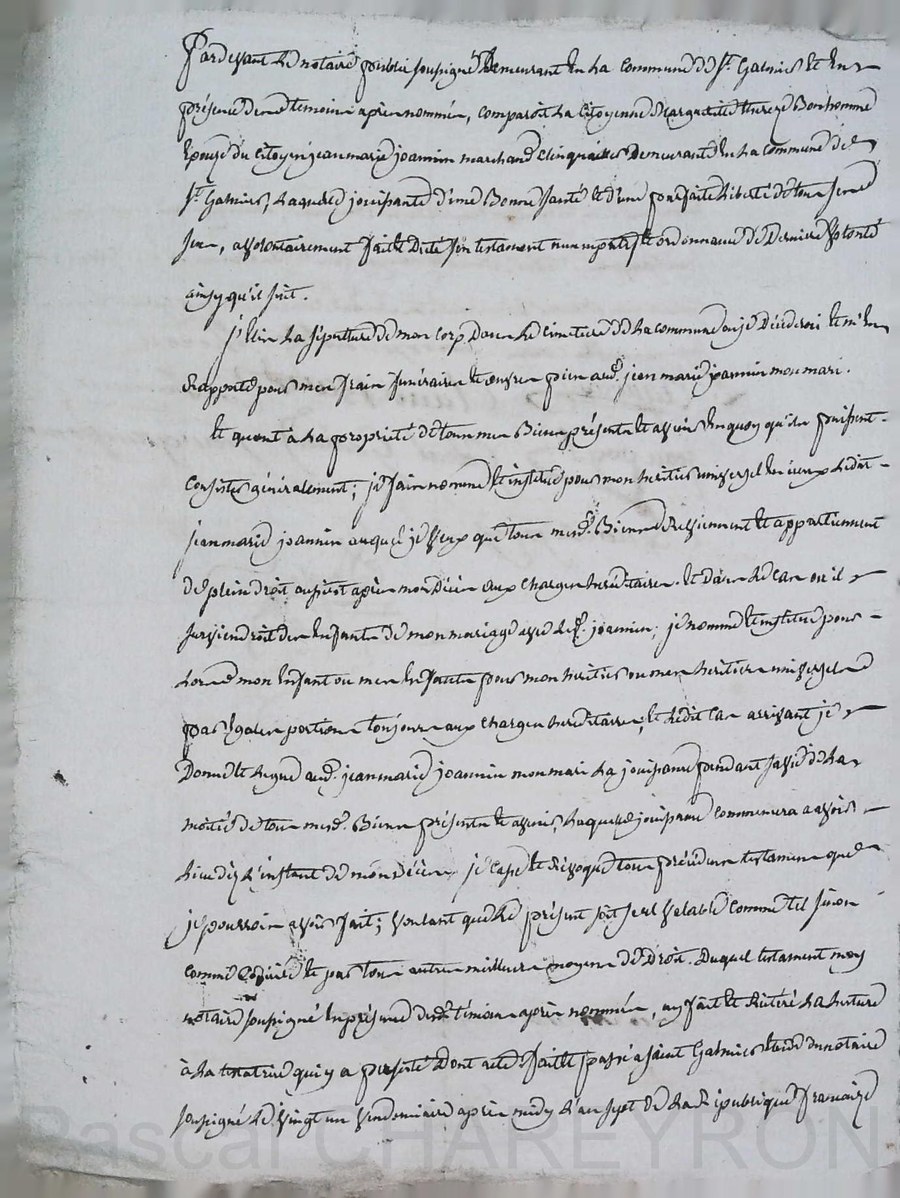 Pardevant le notaire public soussigné Demeurant En La commune de St. Galmier et En
présence des temoins après nommés, comparoit La Citoyenne Margueritte thereze Bonhomme
Epouze du Citoyen jean marie joannin marchand Clinquailler Demeurante En La commune de
St. Galmier, Laquelle jouissante d'une Bonne santé et d'une parfaite Liberté de tous ses
sens, a volontairement fait et Dicté son testament nuncupatif et ordonnance de Derniere volonté
ainsy qu'il suit.
j'Elis La sépulture de mon Corps Dans Le cimetiere de La commune ou je Décéderai et m'En
Rapporte pour mes frais funéraires et œuvres pies aud. jean marie joannin mon mari.
Et quant à La propriété de tous mes Biens présents et avenir En quoy qu'ils puissent
Consister généralement; je fais nomme et institue pour mon heritier universel En iceux Ledit
jean marie joannin auquel je veux que tous mesd. Biens Reviennent et appartiennent
de plein droit aussitot après mon Décès aux charges hereditaires. Et Dans Le Cas ou il
surviendroit des Enfants de mon mariage avec led. joannin; je nomme et institue pour
Lors mon Enfant ou mes Enfants pour mon heritier ou mes heritiers universels
par Egales portions toujours aux charges hereditaires, et Ledit Cas arrivant je
Donne et Legue aud. jean marie joannin mon mari La jouissance pendant sa vie de La
moitié de tous mesd. Biens présents et avenir, Laquelle jouissance commencera a avoir
Lieu dès L'instant de mon Décès. je Casse et Révoque tous précédents testaments que
je pourrois avoir fait; voulant que Le présent soit seul valable Comme tel sinon
comme Codicile et par tous autres meilleurs moyens de Droit. Duquel testament moy
notaire soussigné En présence desd. témoins après nommés, ay fait et Réitéré La Lecture
à La testatrice qui y a persisté Dont acte. Fait et passé a saint Galmier Etude du notaire
soussigné Le vingt un vendemiaire après midy L'an sept de La République française
Pascal CHAREYRON